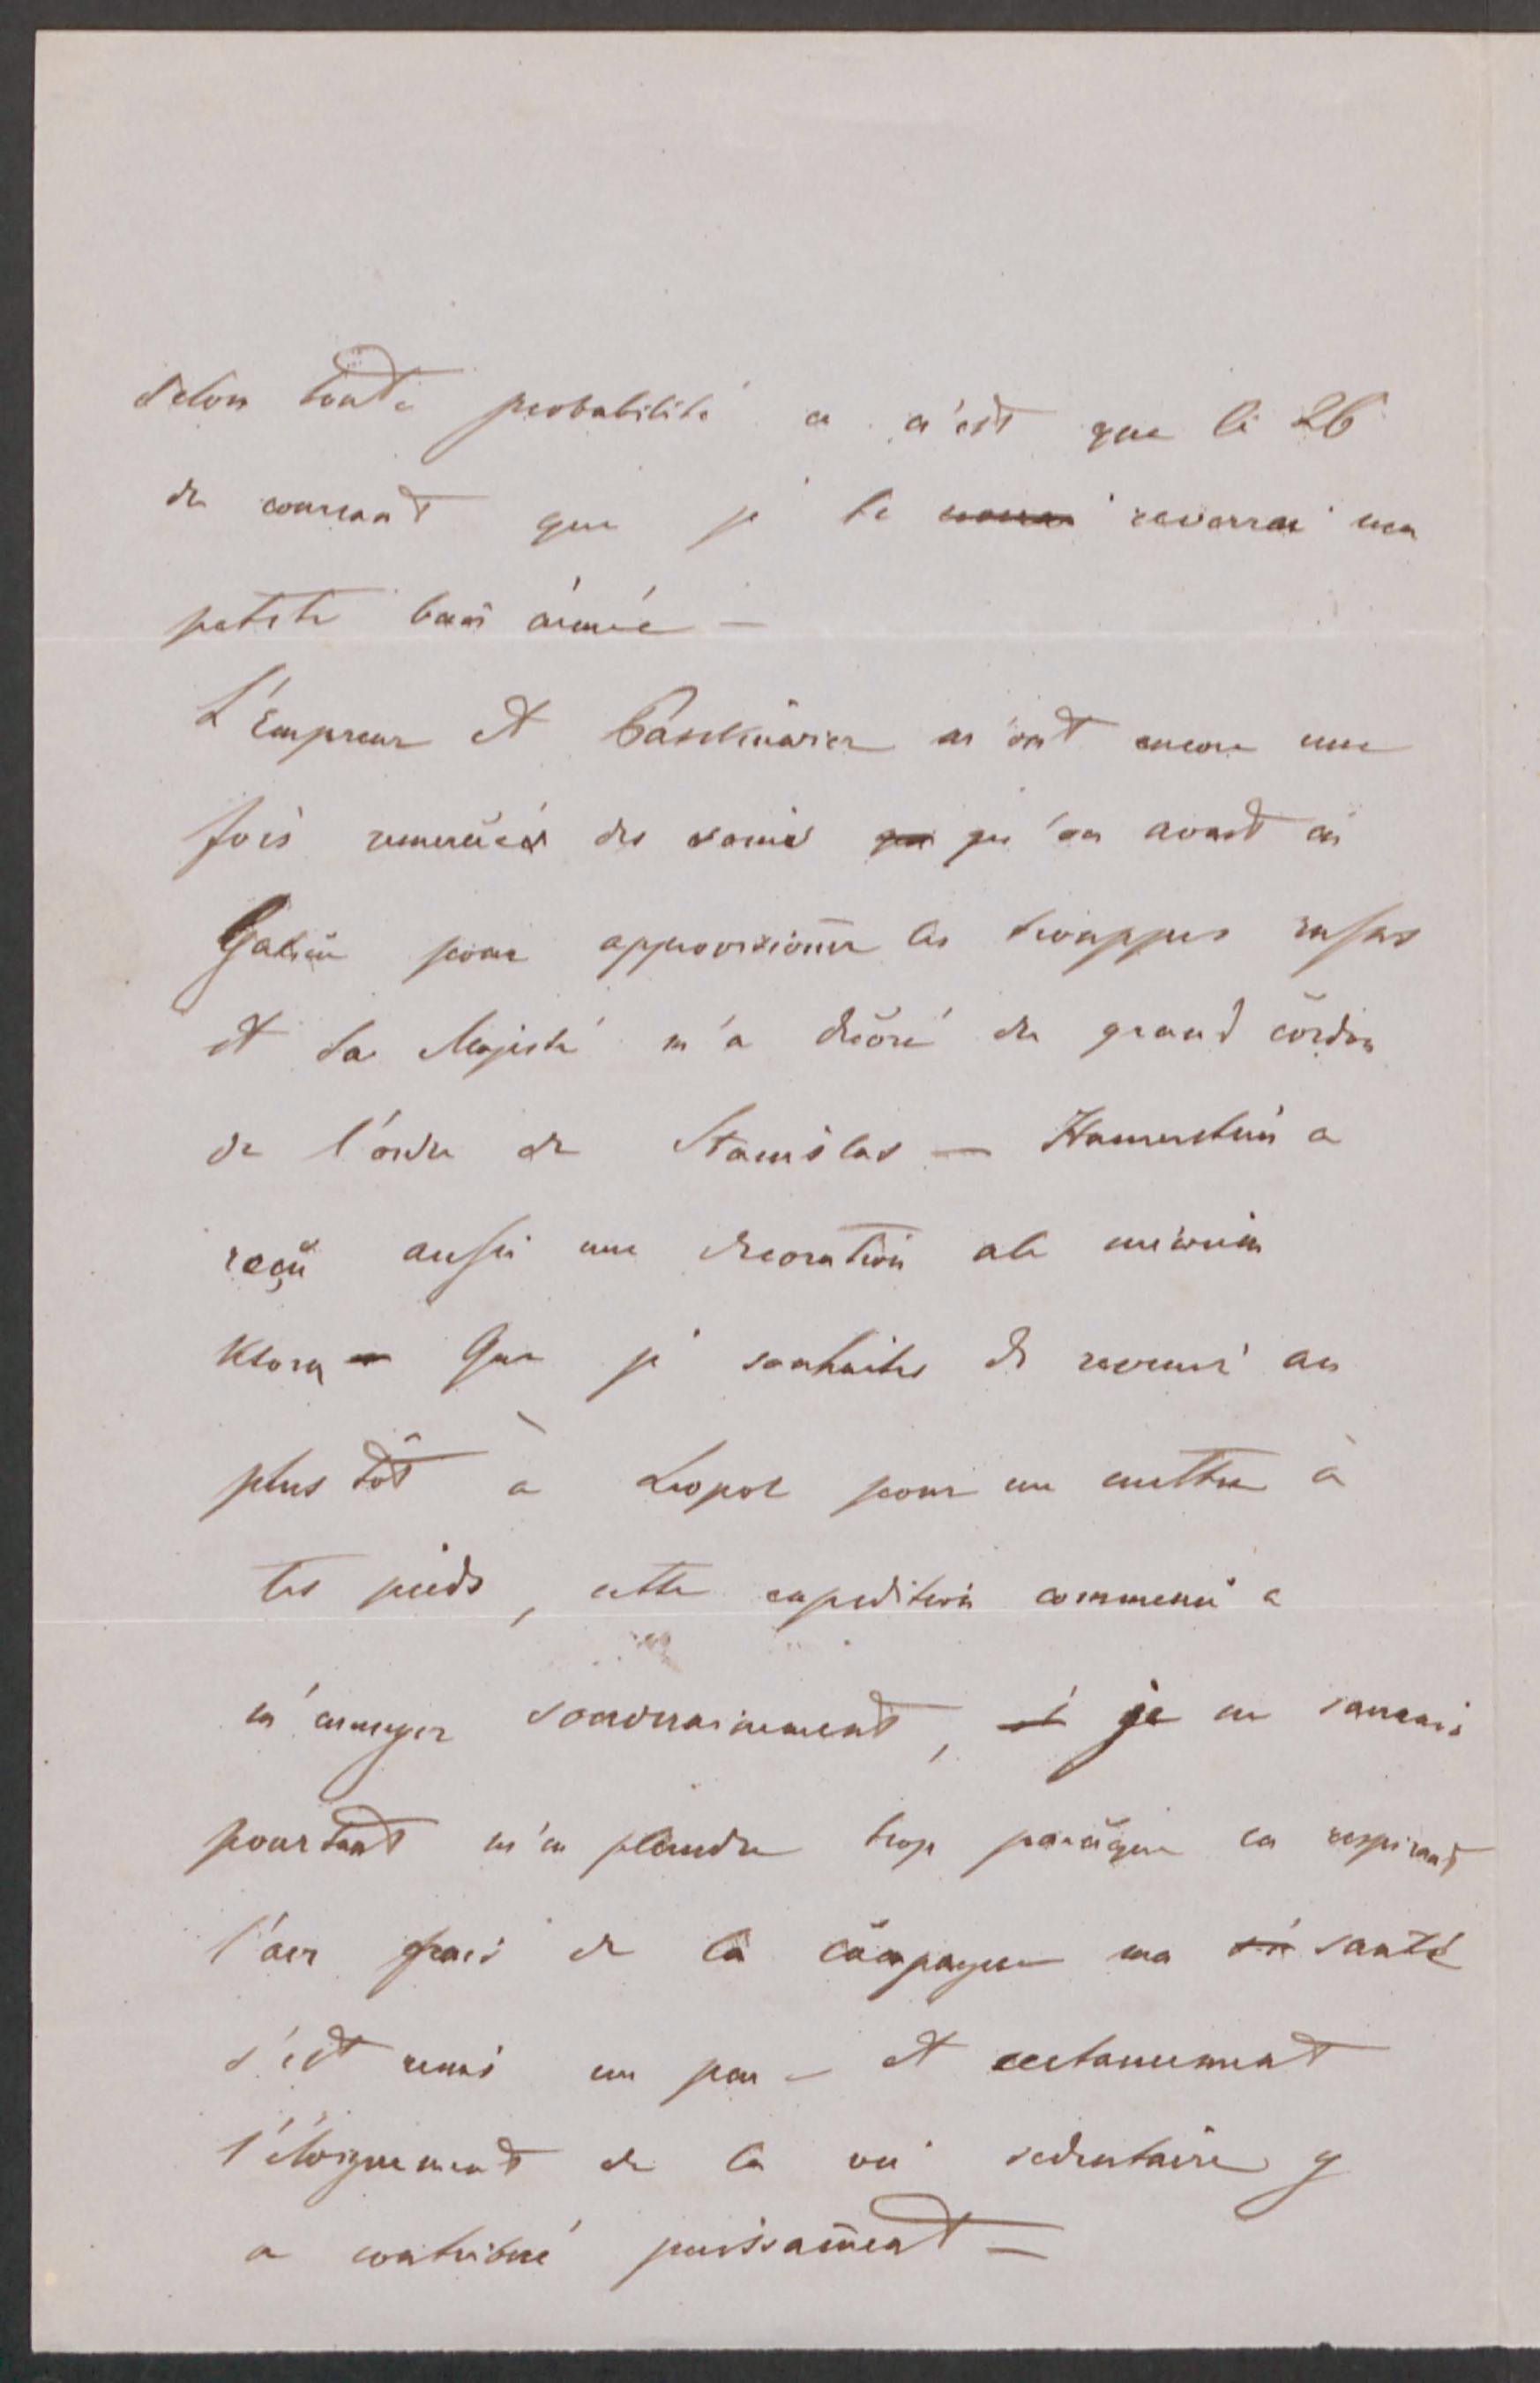 Selon toute probabilité ce n'est que le 26
du courant que je te reverrai ma
petite bien aimée —
L'Empreur et Paskiewicz m'ont encore une
fois remercié des soins qu'on avait en
Galicie pour approvisioñer les trouppes russes
et Sa Majesté m'a décoré du grand cordon
de l'ordre de Stanislas — Hamerstein a
reçu aussi une decoration
Que je souhaites de revenir au
plus tôt à Leopol pour me mettre à
tes pieds, cette expedition commence a
m'ennuyer souverainement, je ne saurais
pourtant m'en plaindre trop parceque en respirant
l'air frais de la campagne ma santé
s'est remis un peu — et certainement
l'éloignement de la vie sedentaire y
a contribué puissam̃ent —